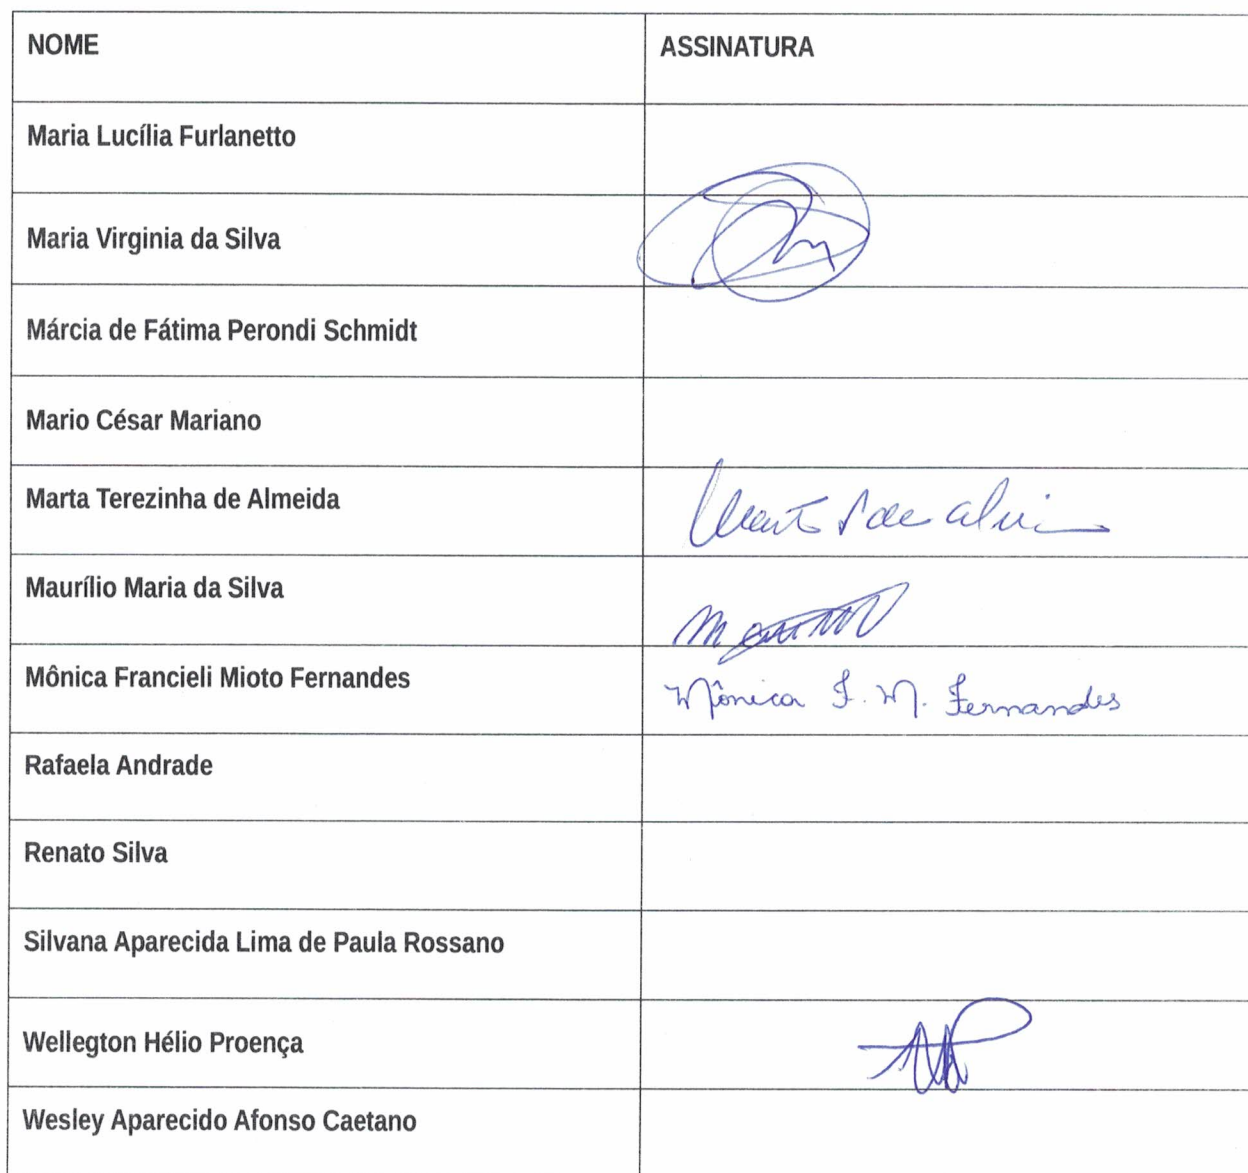 NOME ASSINATURA
Maria Lucília Furlanetto
Maria Virginia da Silva
Márcia de Fátima Perondi Schmidt
Mario César Mariano
Marta Terezinha de Almeida
Maurílio Maria da Silva
Mônica Francieli Mioto Fernandes Mônica F. M. Fernandes
Rafaela Andrade
Renato Silva
Silvana Aparecida Lima de Paula Rossano
Wellegton Hélio Proença
Wesley Aparecido Afonso Caetano